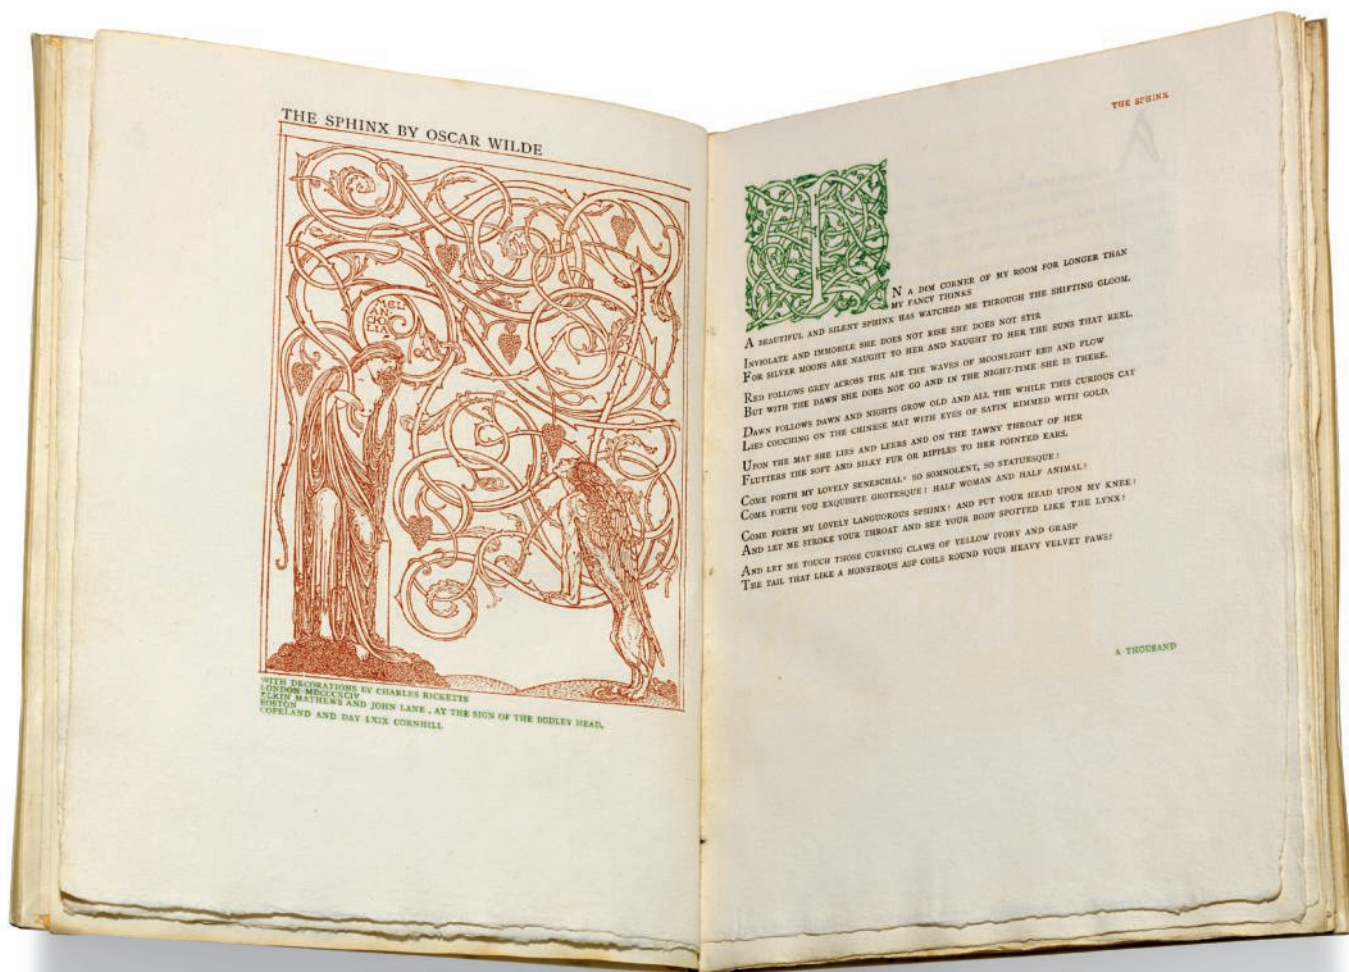 THE SPHINX BY OSCAR WILDE
MEL
AN
CHO
LIA
WITH DECORATIONS BY CHARLES RICKETTS
LONDON MDCCCXCIV
ELKIN MATHEWS AND JOHN LANE . AT THE SIGN OF THE BODLEY HEAD.
BOSTON
COPELAND AND DAY LXIX CORNHILL
THE SPHINX
IN A DIM CORNER OF MY ROOM FOR LONGER THAN
MY FANCY THINKS
A BEAUTIFUL AND SILENT SPHINX HAS WATCHED ME THROUGH THE SHIFTING GLOOM.
INVIOLATE AND IMMOBILE SHE DOES NOT RISE SHE DOES NOT STIR
FOR SILVER MOONS ARE NAUGHT TO HER AND NAUGHT TO HER THE SUNS THAT REEL.
RED FOLLOWS GREY ACROSS THE AIR THE WAVES OF MOONLIGHT EBB AND FLOW
BUT WITH THE DAWN SHE DOES NOT GO AND IN THE NIGHT-TIME SHE IS THERE.
DAWN FOLLOWS DAWN AND NIGHTS GROW OLD AND ALL THE WHILE THIS CURIOUS CAT
LIES COUCHING ON THE CHINESE MAT WITH EYES OF SATIN RIMMED WITH GOLD.
UPON THE MAT SHE LIES AND LEERS AND ON THE TAWNY THROAT OF HER
FLUTTERS THE SOFT AND SILKY FUR OR RIPPLES TO HER POINTED EARS.
COME FORTH MY LOVELY SENESCHAL! SO SOMNOLENT, SO STATUESQUE!
COME FORTH YOU EXQUISITE GROTESQUE! HALF WOMAN AND HALF ANIMAL!
COME FORTH MY LOVELY LANGUOROUS SPHINX! AND PUT YOUR HEAD UPON MY KNEE!
AND LET ME STROKE YOUR THROAT AND SEE YOUR BODY SPOTTED LIKE THE LYNX!
AND LET ME TOUCH THOSE CURVING CLAWS OF YELLOW IVORY AND GRASP
THE TAIL THAT LIKE A MONSTROUS ASP COILS ROUND YOUR HEAVY VELVET PAWS!
A THOUSAND